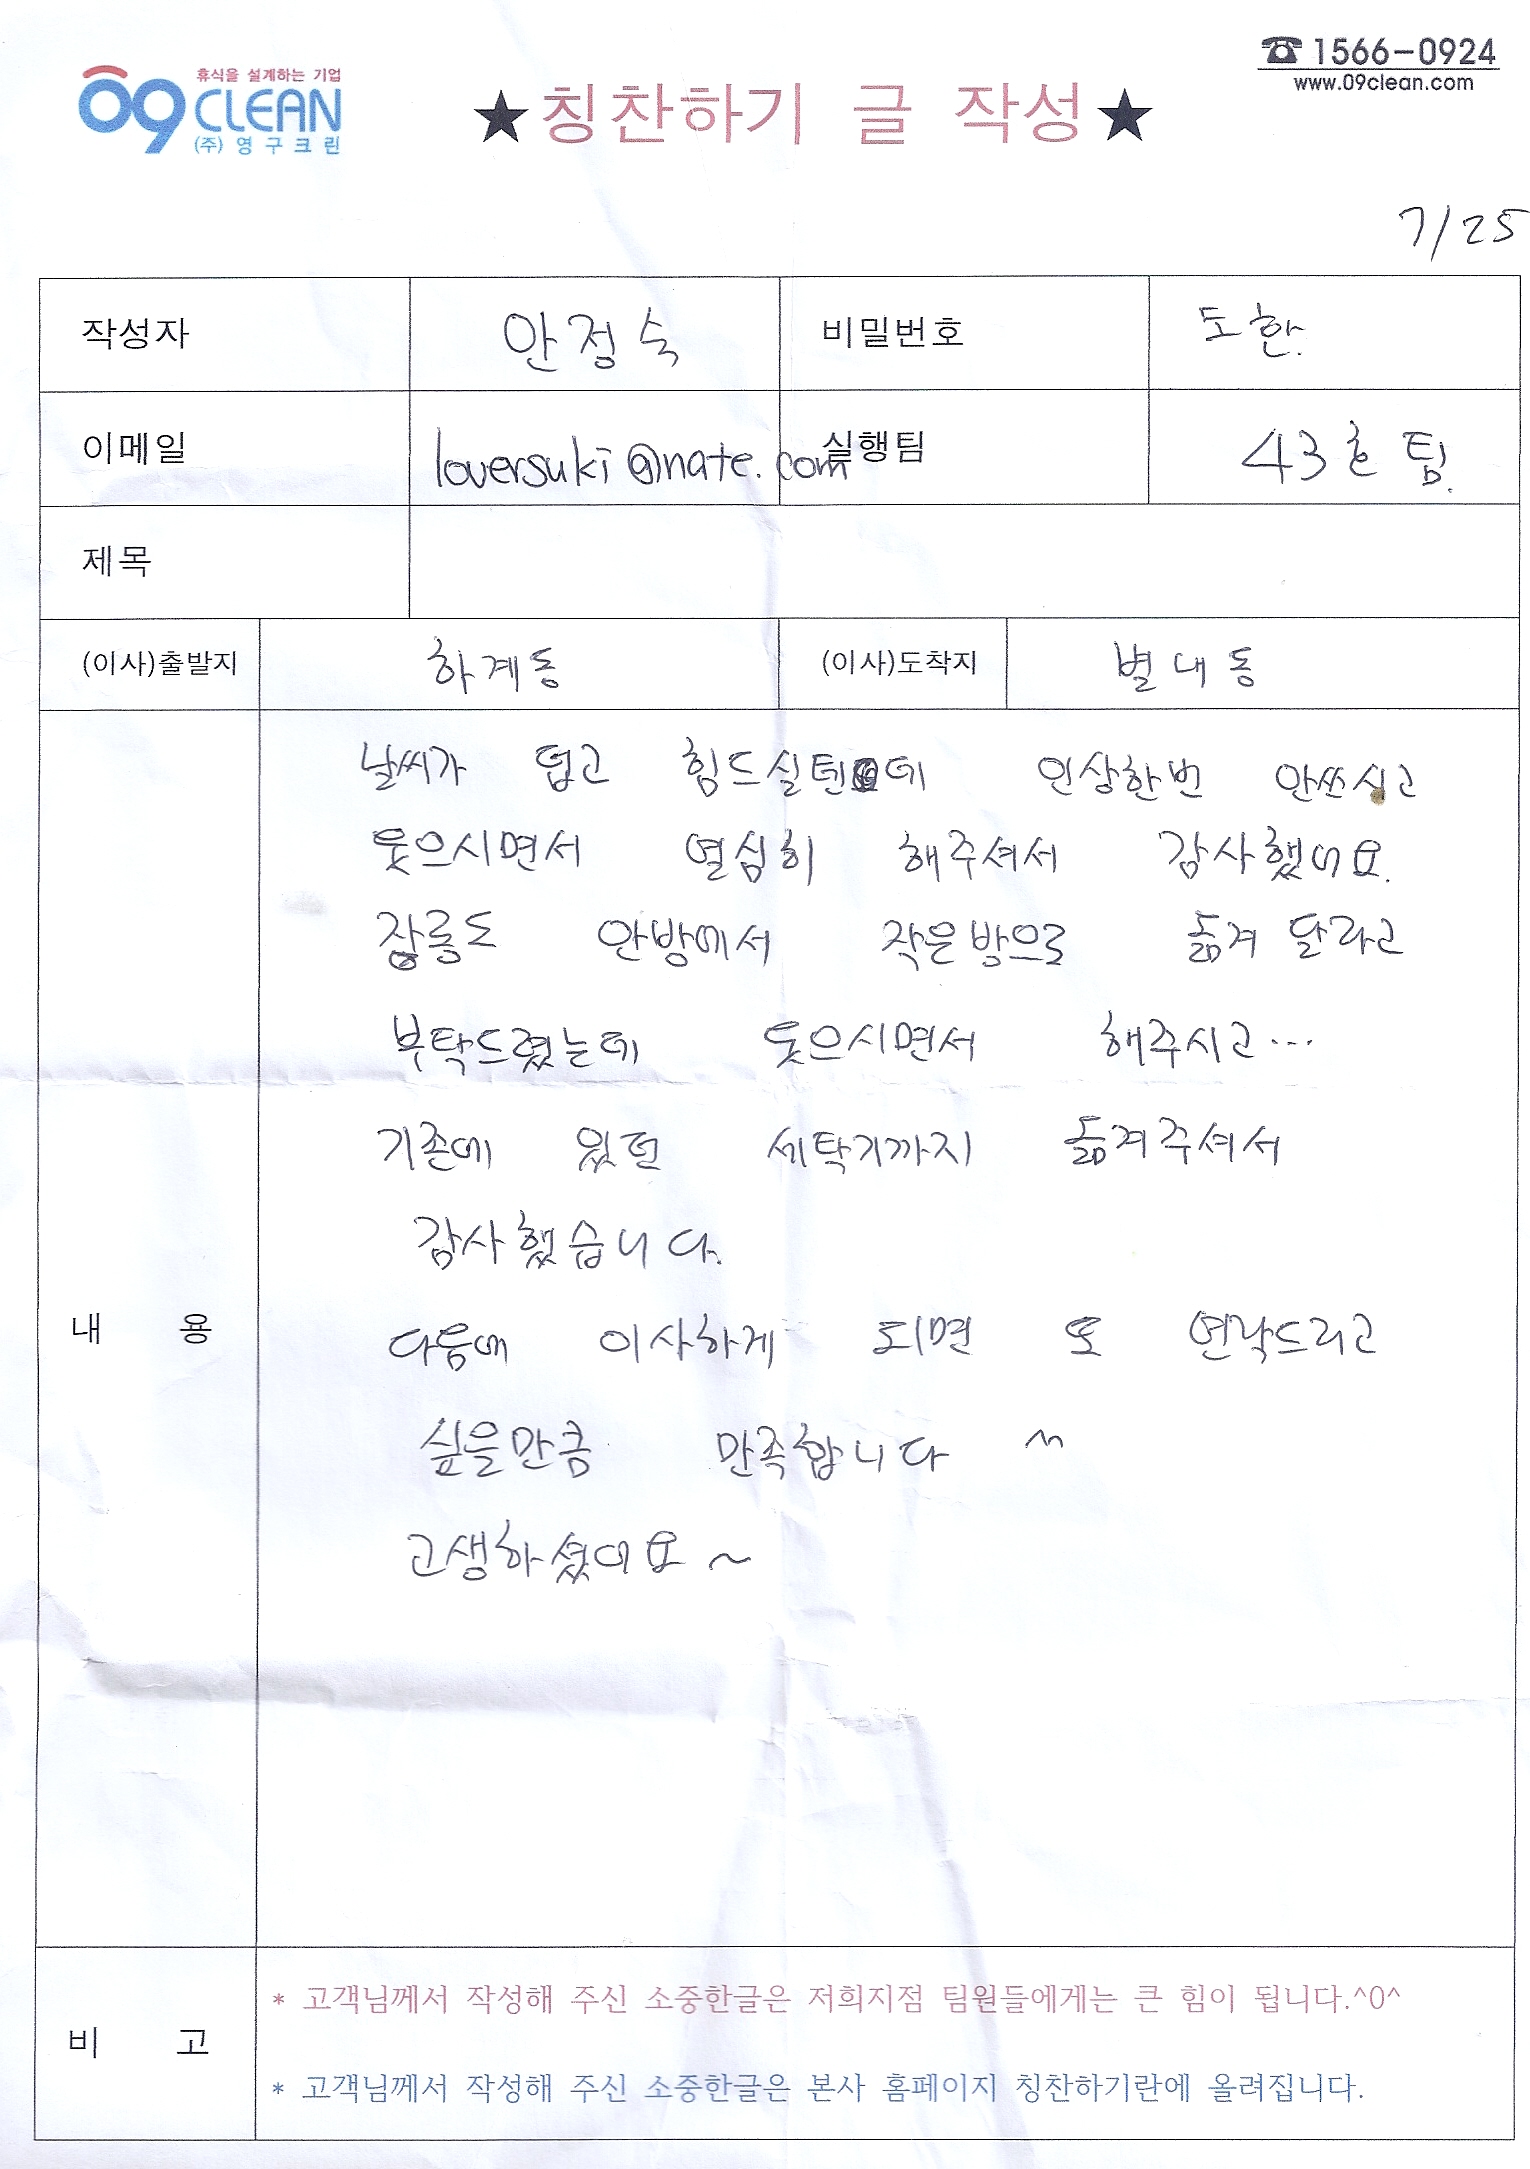 휴식을 설계하는 기업
09 CLEAN
(주)영구크린
★칭찬하기 글 작성★
☎ 1566-0924
www.09clean.com
7/25
작성자 안정숙 비밀번호 도한.
이메일 loversuki@nate.com 실행팀 43호팀.
제목
(이사)출발지 하계동 (이사)도착지 별내동
날씨가 덥고 힘드실텐데 인상한번 안쓰시고
웃으시면서 열심히 해주셔서 감사했어요.
장롱도 안방에서 작은방으로 옮겨 달라고
부탁드렸는데 웃으시면서 해주시고...
기존에 있던 세탁기까지 옮겨주셔서
감사했습니다.
내 용
다음에 이사하게 되면 또 연락드리고
싶을만큼 만족합니다 ^^
고생하셨어요~
비 고
* 고객님께서 작성해 주신 소중한글은 저희지점 팀원들에게는 큰 힘이 됩니다.^0^
* 고객님께서 작성해 주신 소중한글은 본사 홈페이지 칭찬하기란에 올려집니다.